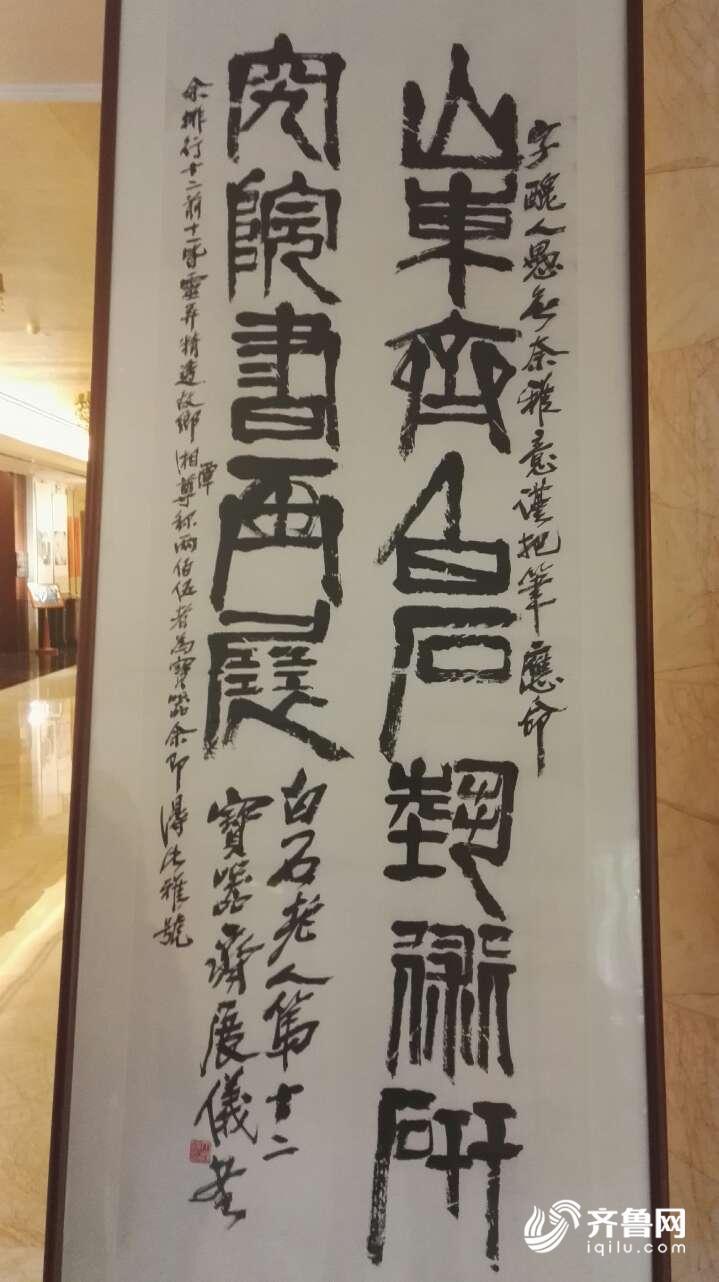 字醜人愚無奈雅意謹把筆應命
山東齊白石藝術研
究院書画展
白石老人第二
寶器齊展儀書
余排行二前十一靈异精故鄉湘潭尊称兩佰伍者為寶器余即得此雅號
齐鲁网
iqilu.com